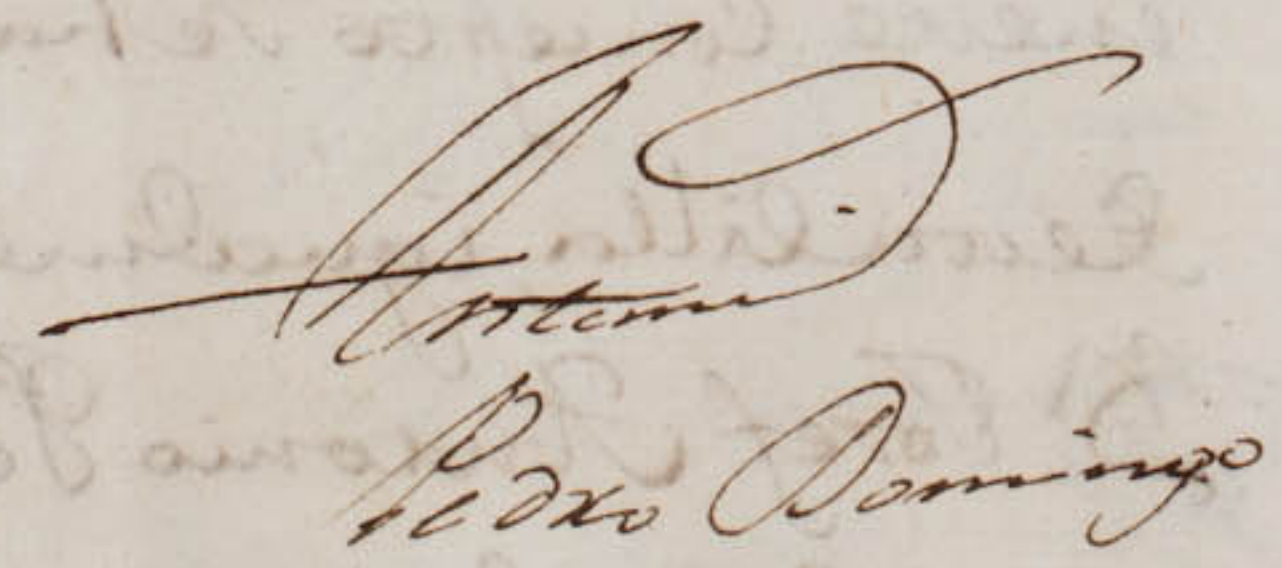 Antonio
Pedro Domingo